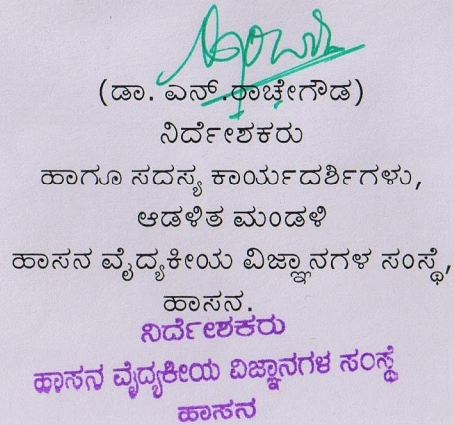 (ಡಾ. ಎನ್.ರಾಚೇಗೌಡ)
ನಿರ್ದೇಶಕರು
ಹಾಗೂ ಸದಸ್ಯ ಕಾರ್ಯದರ್ಶಿಗಳು,
ಆಡಳಿತ ಮಂಡಳಿ
ಹಾಸನ ವೈದ್ಯಕೀಯ ವಿಜ್ಞಾನಗಳ ಸಂಸ್ಥೆ,
ಹಾಸನ.
ನಿರ್ದೇಶಕರು
ಹಾಸನ ವೈದ್ಯಕೀಯ ವಿಜ್ಞಾನಗಳ ಸಂಸ್ಥೆ
ಹಾಸನ